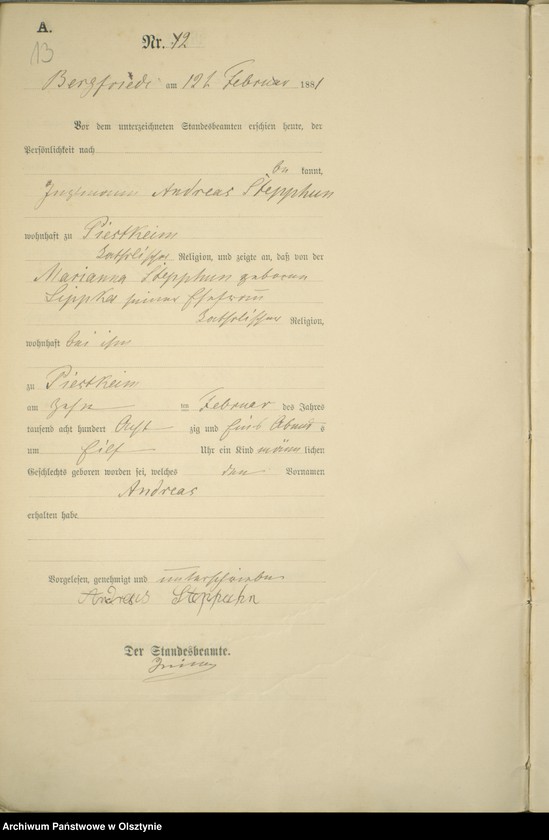 A.
13
Nr. 12
Bergfriede am 12t Februar 1881
Vor dem unterzeichneten Standesbeamten erschien heute, der
Persönlichkeit nach
be kannt,
Andreas Stepphun
wohnhaft zu Piestkeim
katholischer Religion, und zeigte an, daß von der
Marianna Stepphun geborene
Lippka seiner Ehefrau
katholischer Religion,
wohnhaft bei ihm
zu Piestkeim
am zehn ten Februar des Jahres
tausend acht hundert Acht zig und Eins Abends
um Eilf Uhr ein Kind männ lichen
Geschlechts geboren worden sei, welches den Vornamen
Andreas
erhalten habe
Vorgelesen, genehmigt und unterschrieben
Andreas Steppuhn
Der Standesbeamte.
Archiwum Państwowe w Olsztynie